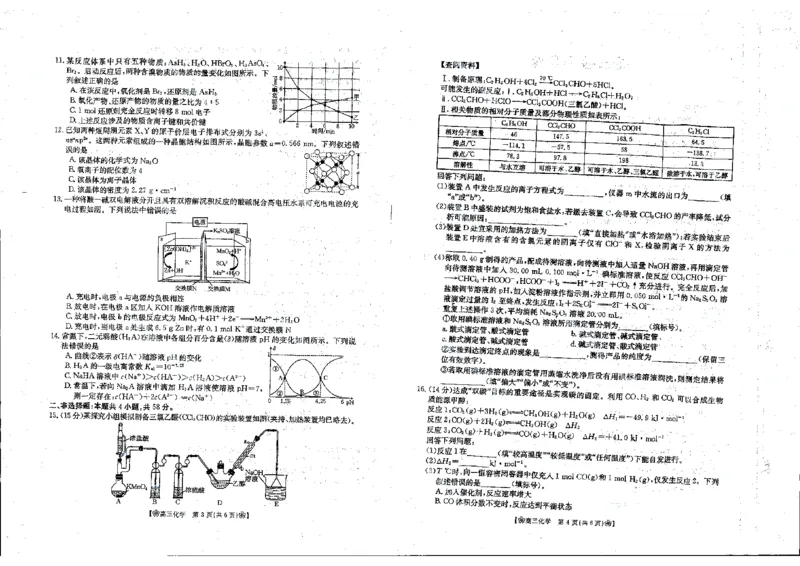 11. 某反应体系中只有五种物质: AsH₃、H₂O、HBrO₃、H₃AsO₄、
Br₂。启动反应后,两种含溴物质的物质的量变化如图所示。下
列叙述正确的是
A. 在该反应中,氧化剂是 Br₂,还原剂是 AsH₃
B. 氧化产物、还原产物的物质的量之比为 4:5
C. 1 mol 还原剂完全反应时转移 8 mol 电子
D. 上述反应涉及的物质含离子键和共价键
12. 已知两种短周期元素 X、Y 的原子价层电子排布式分别为 3s¹、
这两种元素组成的一种晶胞结构如图所示,晶胞参数 a=0.566 nm。下列叙述错
误的是
A. 该晶体的化学式为 Na₂O
B. 氧离子的配位数为 4
C. 该晶体为离子晶体
D. 该晶体的密度为 2.27 g·cm⁻³
13. 一种将酸—碱双电解液分开且具有双溶解沉积反应的酸碱混合高电压水系可充电电池的充
电过程如图。下列说法中错误的是
电源
K₂SO₄溶液
K⁺
SO₄²⁻
交换膜N 交换膜M
A. 充电时,电极 a 与电源的负极相连
B. 放电时,在电极 a 区加入 KOH 溶液作电解质溶液
C. 放电时,电极 b 的电极反应式为 MnO₂+4H⁺+2e⁻══Mn²⁺+2H₂O
D. 充电时,当电极 a 处生成 6.5 g Zn 时,有 0.1 mol K⁺ 通过交换膜 N
14. 常温下,二元弱酸(H₂A)在溶液中各组分百分含量(δ)随溶液 pH 的变化如图所示。下列说
法错误的是
A. 曲线②表示 δ(HA⁻)随溶液 pH 的变化
C. NaHA 溶液中 c(Na⁺)>c(HA⁻)>c(H₂A)>c(A²⁻)
D. 常温下,若向 Na₂A 溶液中滴加 H₂A 溶液使溶液 pH=7,
则一定存在:c(HA⁻)+2c(A²⁻)══c(Na⁺)
二、非选择题:本题共 4 小题,共 58 分。
15. (15 分)某探究小组模拟制备三氯乙醛(CCl₃CHO)的实验装置如图(夹持、加热装置均已略去)。
浓盐酸
KMnO₄
浓硫酸
乙醇
NaOH
溶液
A B C D E
【高三化学 第 3 页(共 6 页)】
【查阅资料】
可能发生的副反应: ⅰ. C₂H₅OH+HCl→C₂H₅Cl+H₂O;
ⅱ. CCl₃CHO+HClO→CCl₃COOH(三氯乙酸)+HCl。
Ⅱ. 相关物质的相对分子质量及部分物理性质如表所示:
C₂H₅OH CCl₃CHO CCl₃COOH C₂H₅Cl
相对分子质量 46 147.5 163.5 64.5
熔点/℃ -114.1 -57.5 58 -138.7
沸点/℃ 78.3 97.8 198 12.3
溶解性 与水互溶 可溶于水、乙醇 可溶于水、乙醇、三氯乙醛 微溶于水,可溶于乙醇
回答下列问题:
(1)装置 A 中发生反应的离子方程式为________,仪器 m 中水流的出口为________(填
“a”或“b”)。
(2)装置 B 中盛装的试剂为饱和食盐水,若撤去装置 C,会导致 CCl₃CHO 的产率降低,试分
析可能原因:________。
(3)装置 D 处宜采用的加热方法为________(填“直接加热”或“水浴加热”);若实验结束后
装置 E 中溶液含有的含氯元素的阴离子仅有 ClO⁻ 和 X,检验阴离子 X 的方法为
________。
(4)称取 0.40 g 制得的产品,配成待测溶液,向待测液中加入适量 NaOH 溶液,再用滴定管
向待测溶液中加入 30.00 mL 0.100 mol·L⁻¹ 碘标准溶液,使反应 CCl₃CHO+OH⁻
→CHCl₃+HCOO⁻、HCOO⁻+I₂══H⁺+2I⁻+CO₂↑充分进行。完全反应后,加
盐酸调节溶液的 pH,加入淀粉溶液作指示剂,并立即用 0.050 mol·L⁻¹ 的 Na₂S₂O₃ 溶
液滴定过量的 I₂ 至终点,发生反应: I₂+2S₂O₃²⁻══2I⁻+S₄O₆²⁻。
重复上述操作 3 次,平均消耗 Na₂S₂O₃ 溶液 20.00 mL。
①取用碘标准溶液和 Na₂S₂O₃ 溶液所用滴定管分别为________(填标号)。
②实验到达滴定终点的现象是________,测得产品的纯度为________(保留三
位有效数字)。
③若取用碘标准溶液的滴定管用蒸馏水洗净后没有用碘标准溶液润洗,则测定结果将
________(填“偏大”“偏小”或“不变”)。
16. (14 分)达成“双碳”目标的重要途径是实现碳的固定。利用 CO、H₂ 和 CO₂ 可以合成生物
质能源甲醇:
反应 1:CO₂(g)+3H₂(g)⇌CH₃OH(g)+H₂O(g) ΔH₁=-49.9 kJ·mol⁻¹
反应 2:CO(g)+2H₂(g)⇌CH₃OH(g) ΔH₂
反应 3:CO₂(g)+H₂(g)⇌CO(g)+H₂O(g) ΔH₃=+41.0 kJ·mol⁻¹
回答下列问题:
(1)反应 1 在________(填“较高温度”“较低温度”或“任何温度”)下能自发进行。
(2)ΔH₂=________kJ·mol⁻¹。
(3)T ℃时,向一恒容密闭容器中仅充入 1 mol CO(g)和 1 mol H₂(g),仅发生反应 2。下列
叙述错误的是________(填标号)。
A. 加入催化剂,反应速率增大
B. CO 体积分数不变时,反应达到平衡状态
【高三化学 第 4 页(共 6 页)】